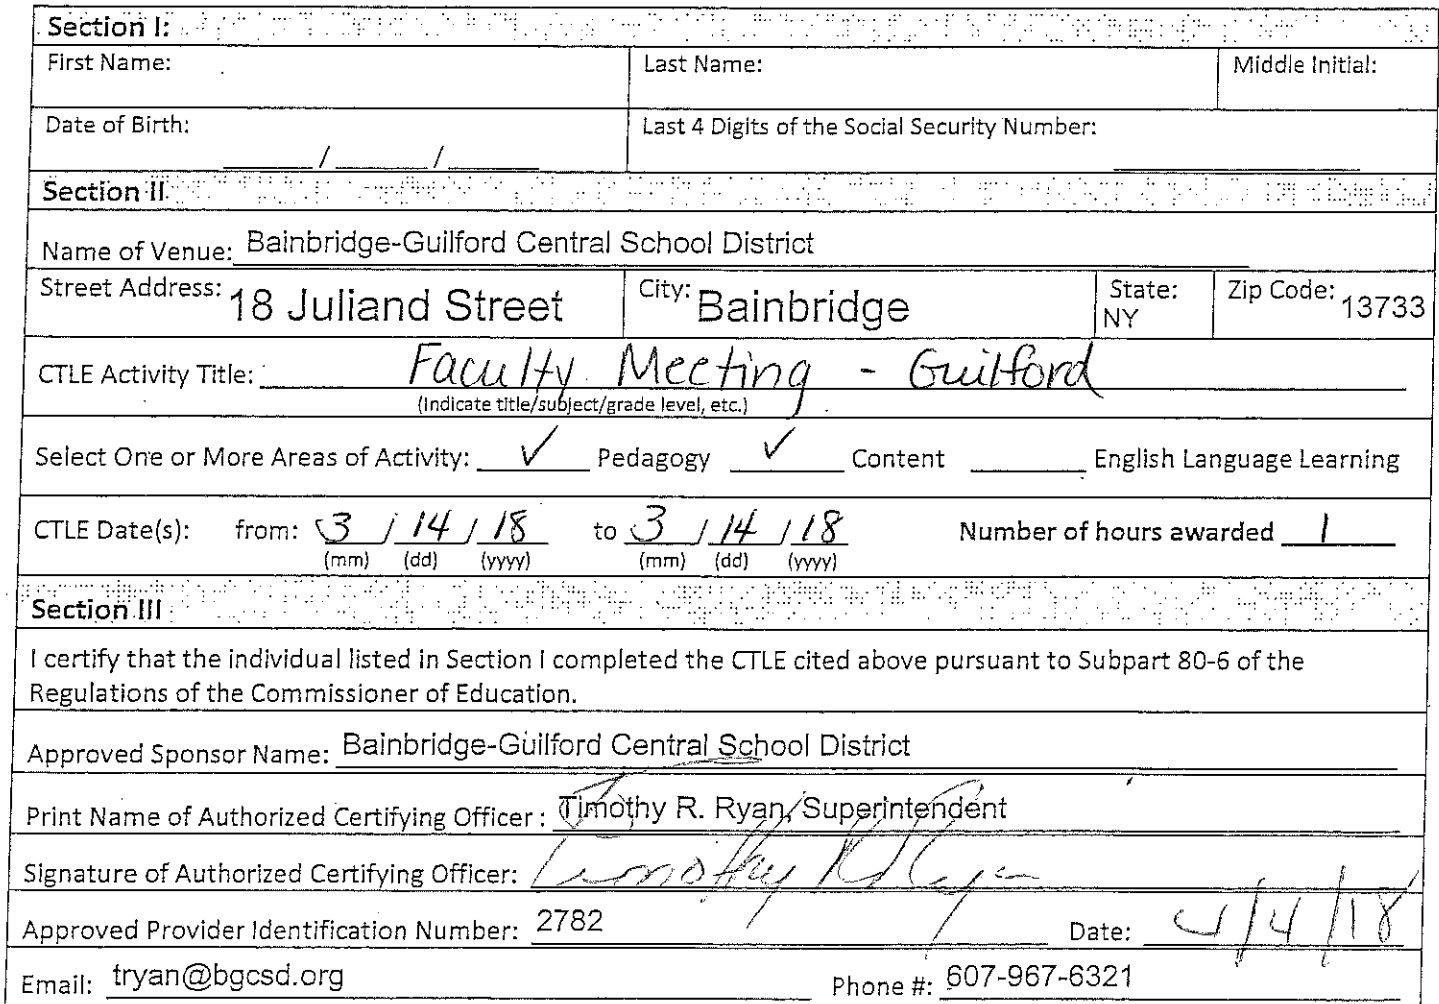 Section I:
First Name: Last Name: Middle Initial:
Date of Birth: ____/____/____ Last 4 Digits of the Social Security Number: ____
Section II
Name of Venue: Bainbridge-Guilford Central School District
Street Address: 18 Juliand Street City: Bainbridge State: NY Zip Code: 13733
CTLE Activity Title: Faculty Meeting - Guilford
(Indicate title/subject/grade level, etc.)
Select One or More Areas of Activity: ✓ Pedagogy ✓ Content ____ English Language Learning
CTLE Date(s): from: 3 / 14 / 18 to 3 / 14 / 18 Number of hours awarded 1
(mm) (dd) (yyyy) (mm) (dd) (yyyy)
Section III
I certify that the individual listed in Section I completed the CTLE cited above pursuant to Subpart 80-6 of the
Regulations of the Commissioner of Education.
Approved Sponsor Name: Bainbridge-Guilford Central School District
Print Name of Authorized Certifying Officer : Timothy R. Ryan, Superintendent
Signature of Authorized Certifying Officer: Timothy R Ryan
Approved Provider Identification Number: 2782 Date: 4/4/18
Email: tryan@bgcsd.org Phone #: 607-967-6321